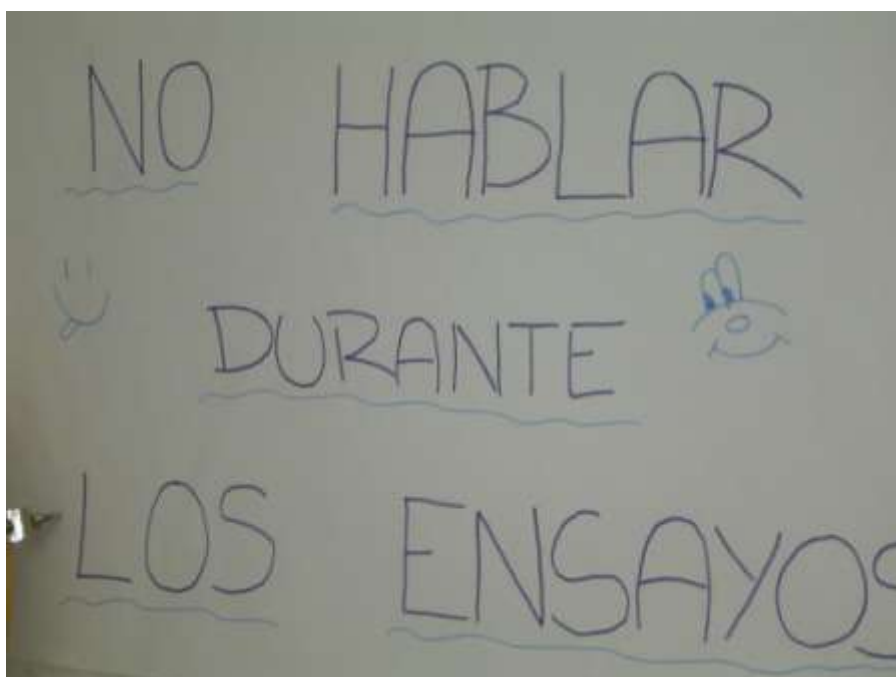 NO HABLAR
DURANTE
LOS ENSAYOS